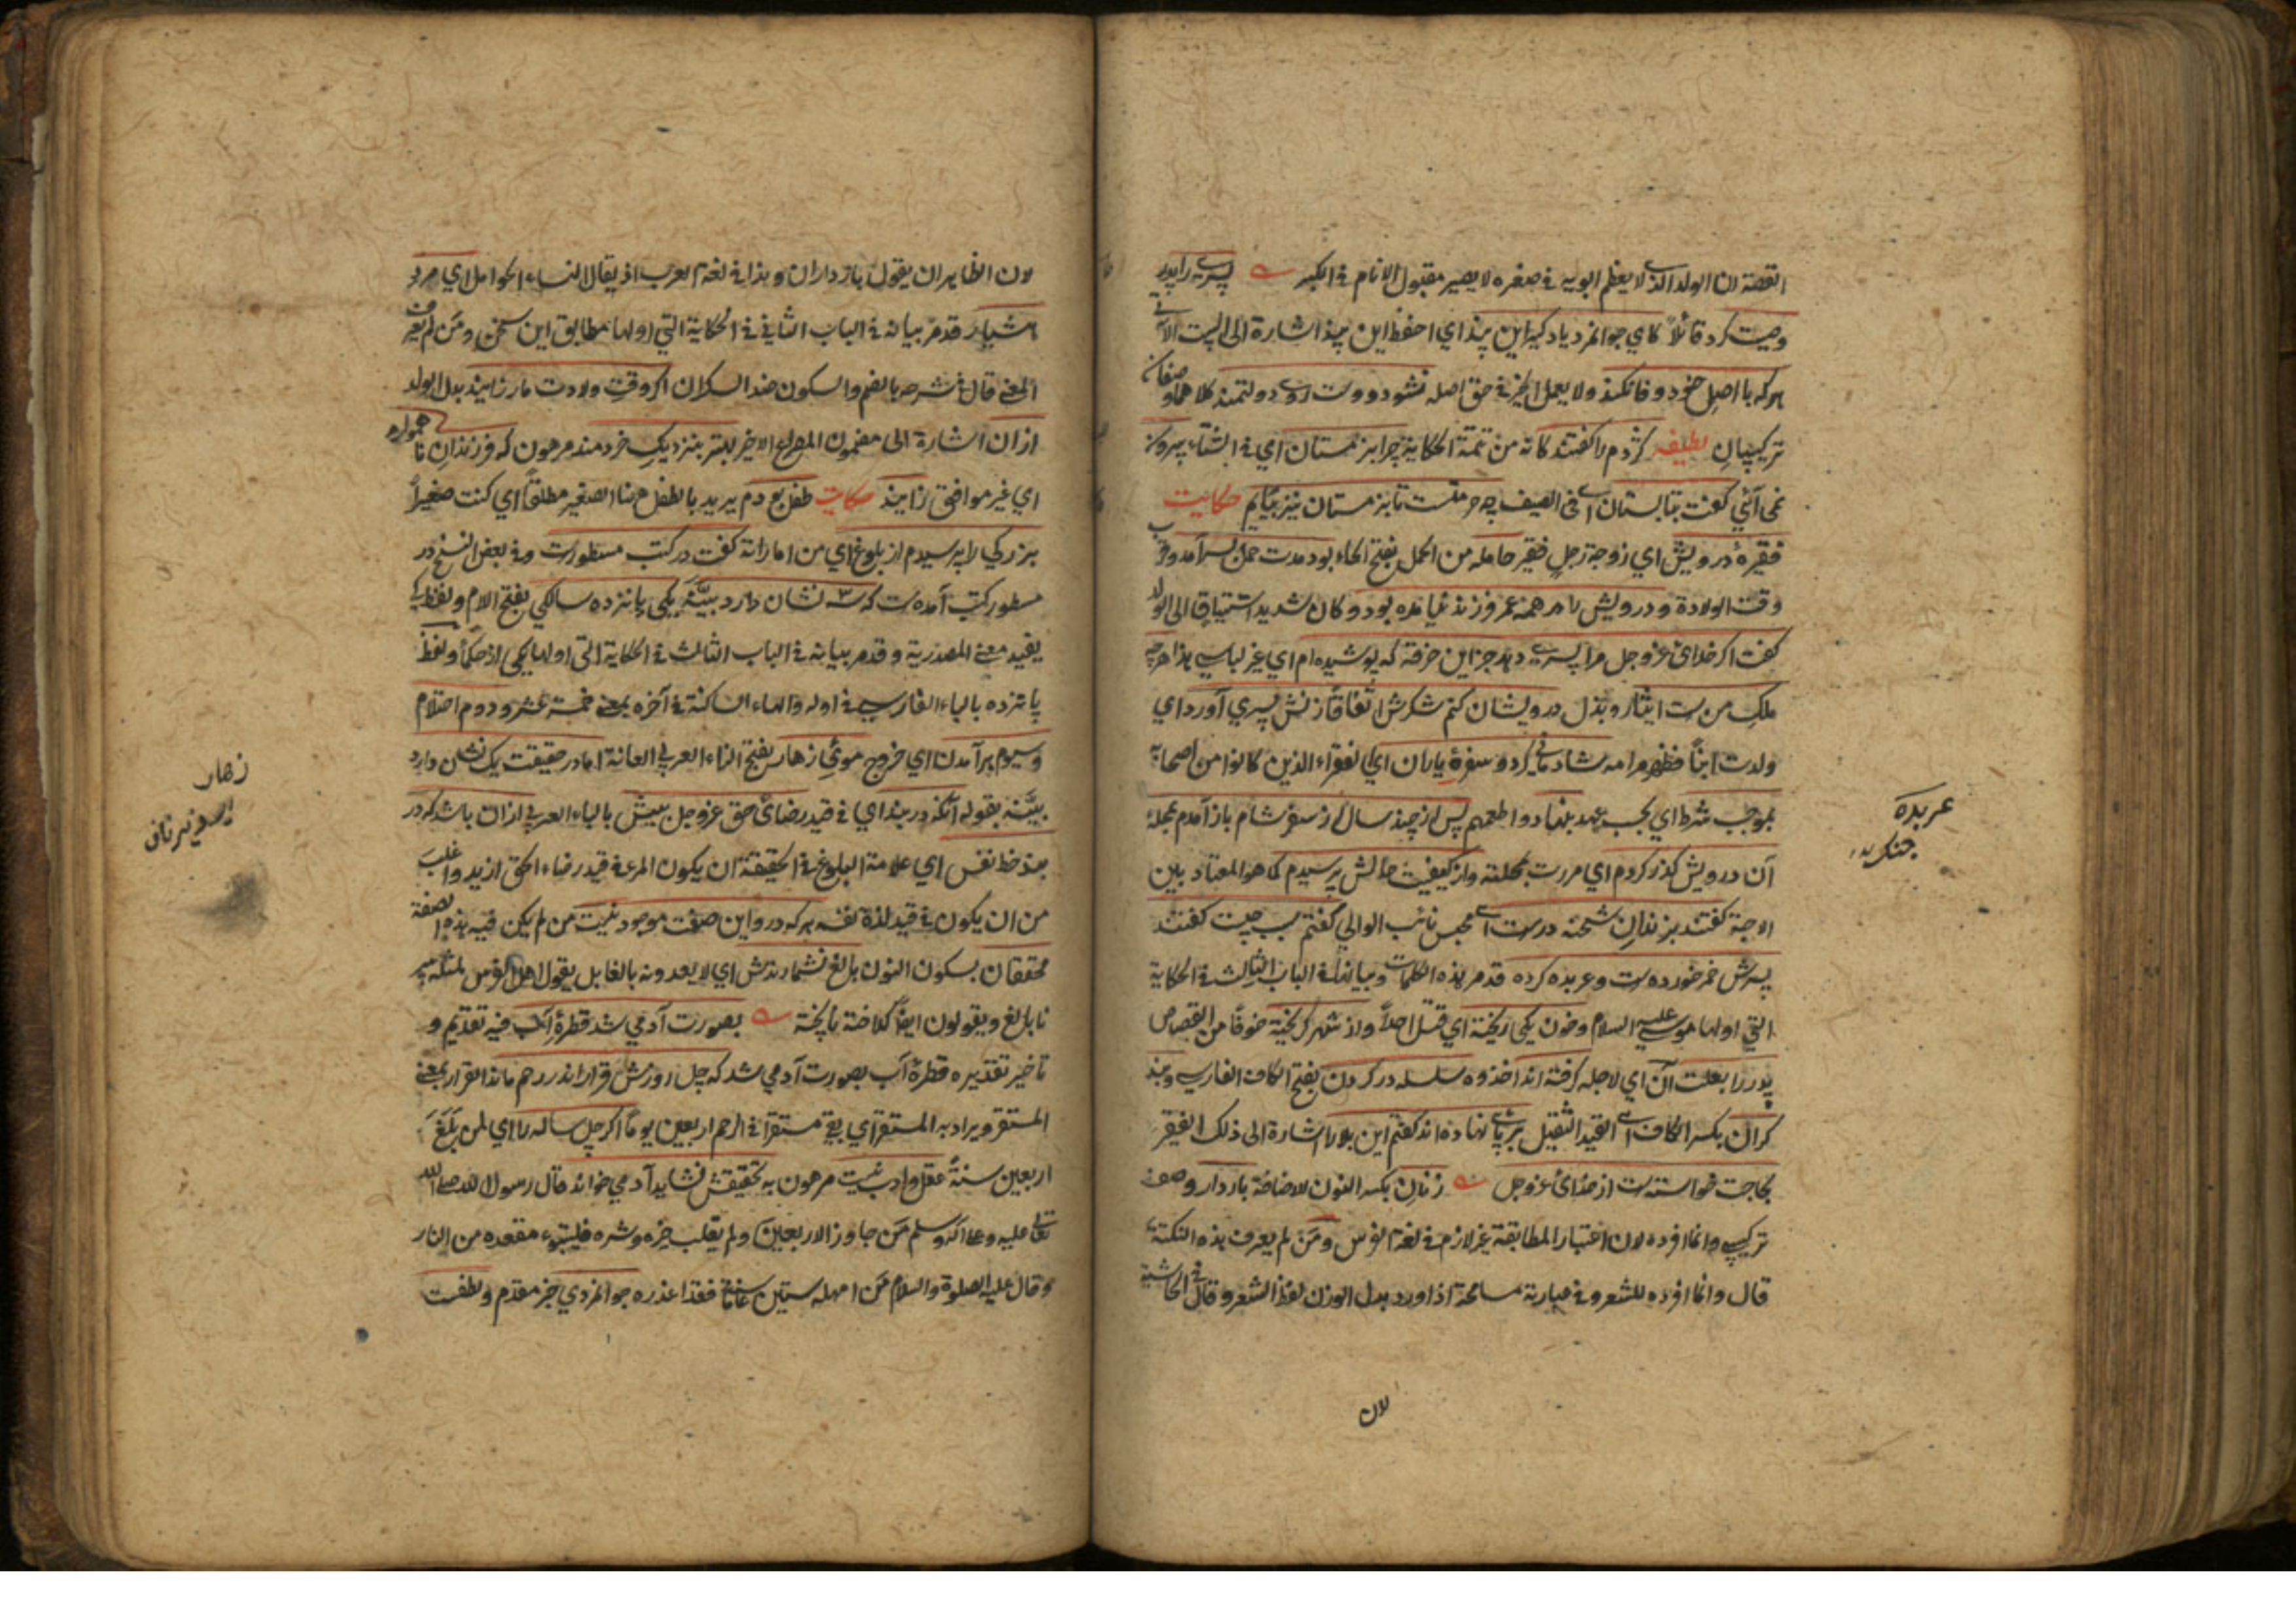 القصة ان الولد الذي لا يعظم ابويه في صغره لا يصير مقبول الانام في الكبر پسری را پدر
وصیت کرد قائلا کای جوانمرد یاد گیر این پند ای احفظ این پند اشارة الی البیت الآتی
هرکه با اصل خود وفا نکند ولا یعمل الخیر فی حق اصله نشود دوست روی دولتمند کلاهما وصفان
ترکیبیان لطیفه کژدم را گفتند کانه من تتمة الحکایة چرا بزمستان ای فی الشتاء بیرون
نمی آئی گفت بتابستان ای فی الصیف چه حرمتست تا بزمستان نیز بیایم حکایت
فقیرهٔ درویش ای زوجة رجل فقیر حامله من الحمل بفتح الحاء بود مدت حمل بسر آمد وقرب
وقت الولادة و درویش را همه عمر فرزند نیامده بود وکان شدید اشتیاقا الی الولد
گفت اگر خدای عزوجل مرا پسری دهد جز این خرقه که پوشیده ام ای غیر لباسی هذا هرچه
ملک منست ایثار وبذل درویشان کنم شکرش اتفاقا زنش پسری آورد ای
ولدت ابنا فظهر مرامه شادمانی کرد و سفرهٔ یاران ای الفقراء الذین کانوا من اصحابه
بموجب شرط ای بحسب عهد بنهاد واطعمهم پس از چند سال از سفر شام باز آمدم بمحله
آن درویش گذر کردم ای مررت بمحلته واز کیفیت حالش پرسیدم کما هو المعتاد بین
الاحبة گفتند بزندان شحنه درست ای محبس نائب الوالی گفتم سبب چیست گفتند
پسرش خمر خورده است وعربده کرده قد مر هذه الکلمات وبیانها فی الباب الثالث فی الحکایة
التی اولها موسی علیه السلام وخون یکی ریخته ای قتل احدا واز شهر گریخته خوفا من القصاص
پدر را بعلت آن ای لاجله گرفته اند اخذوه سلسله در گردن بفتح الکاف الفارسی وبند
گران بکسر الکاف ای القید الثقیل بر پای نهاده اند گفتم این بلا را اشارة الی ذلک الفقیر
بحاجت خواسته است از خدای عزوجل زنان بکسر النون للاضافة باردار وصف
ترکیبی وانما افرده لان اعتبار المطابقة غیر لازم فی لغة الفرس ومن لم یعرف هذه النکتة
قال وانما افرده للشعر وفی عبارته مسامحة اذ اورد بدل الوزن لفظ الشعر وقال فی الحاشیة
لان
عربدة
جنک
لان الظاهر ان یقول بازداران وهذا فی لغة العرب اذ یقال النساء الحوامل ای مرد
هشیار قد مر بیانه فی الباب الثانی فی الحکایة التی اولها مطابق این سخن ومن لم یعرف
المعنی قال فی شرحه بالضم والسکون ضد السکران اگر وقت ولادت مار زایند بدل الولد
ازان اشارة الی مضمون المصراع الاخیر بهتر بنزدیک خردمند مرهون که فرزندان ناهموار
ای غیر موافق زایند حکایت طفل بودم یرید بالطفل ههنا الصغیر مطلقا ای کنت صغیرا
بزرگی را پرسیدم از بلوغ ای من اماراته گفت در کتب مسطورست وفی بعض النسخ در
مسطور کتب آمدست که سه نشان دارد بینه یکی پانزده سالگی بفتح اللام ولفظ کی
یفید معنی المصدریة وقد مر بیانه فی الباب الثالث فی الحکایة التی اولها یکی از حکما ولفظ
پانزده بالباء الفارسی فی اوله والهاء الساکنة فی آخره بمعنی خمسة عشر و دوم احتلام
وسیوم برآمدن ای خروج موی زهار بفتح الزاء العربی العانة اما در حقیقت یک نشان دارد
بینه بقوله آنکه در بند ای فی قید رضای حق عزوجل بیش بالباء العربی ازان باشد که در
بند حظ نفس ای علامة البلوغ فی الحقیقة ان یکون المرء فی قید رضاء الحق ازید واغلب
من ان یکون فی قید لذة نفسه هرکه درو این صفت موجود نیست من لم یکن فیه هذه الصفة
محققان بسکون النون بالغ نشمارندش ای لا یعدونه بالغا بل یقول اهل الفرس لمثله پیر
نابالغ ویقولون ایضا کلاخته ناپخته بصورت آدمی شد قطرهٔ آب فیه تقدیم و
تاخیر تقدیره قطرهٔ آب بصورت آدمی شد که چل روزش قرار اندر رحم ماند القرار بمعنی
المستقر ویراد به المستقر ای بقی مستقرا فی الرحم اربعین یوما اگر چل ساله را ای لمن بلغ
اربعین سنة عقل وادب نیست مرهون به تحقیقش نشاید آدمی خواند قال رسول الله صلی الله
تعالی علیه وعلی آله وسلم من جاوز الاربعین ولم یغلب خیره شره فلیتبوء مقعده من النار
وقال علیه الصلوة والسلام من امهله ستین سنة فقد اعذره جوانمردی خبر مقدم ولطفست
زهار